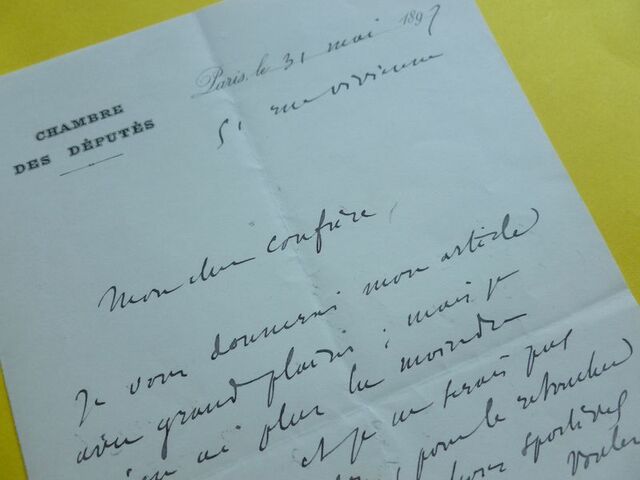 CHAMBRE
DES DÉPUTÉS
Paris, le 31 mai 1897
51 rue vivienne
Mon cher confrère,
Je vous donnerai mon article
avec grand plaisir ; mais je
n'en ai plus la moindre
et je ne serais pas
pour le retoucher